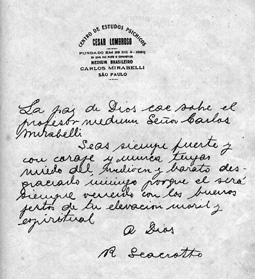 CENTRO DE ESTUDOS PSICHICOS
CESAR LOMBROSO
FUNDADO EM
MEDIUM BRASILEIRO
CARLOS MIRABELLI
SÃO PAULO
La paz de Dios cae sobre el
profesor medium Señor Carlos
Mirabelli
Seas siempre fuerte y
con coraje y nunca tengas
miedo del y barato des-
graciado enemigo porque el será
siempre vencido con los buenos
de tu elevacion moral y
espiritual
A Dios
R